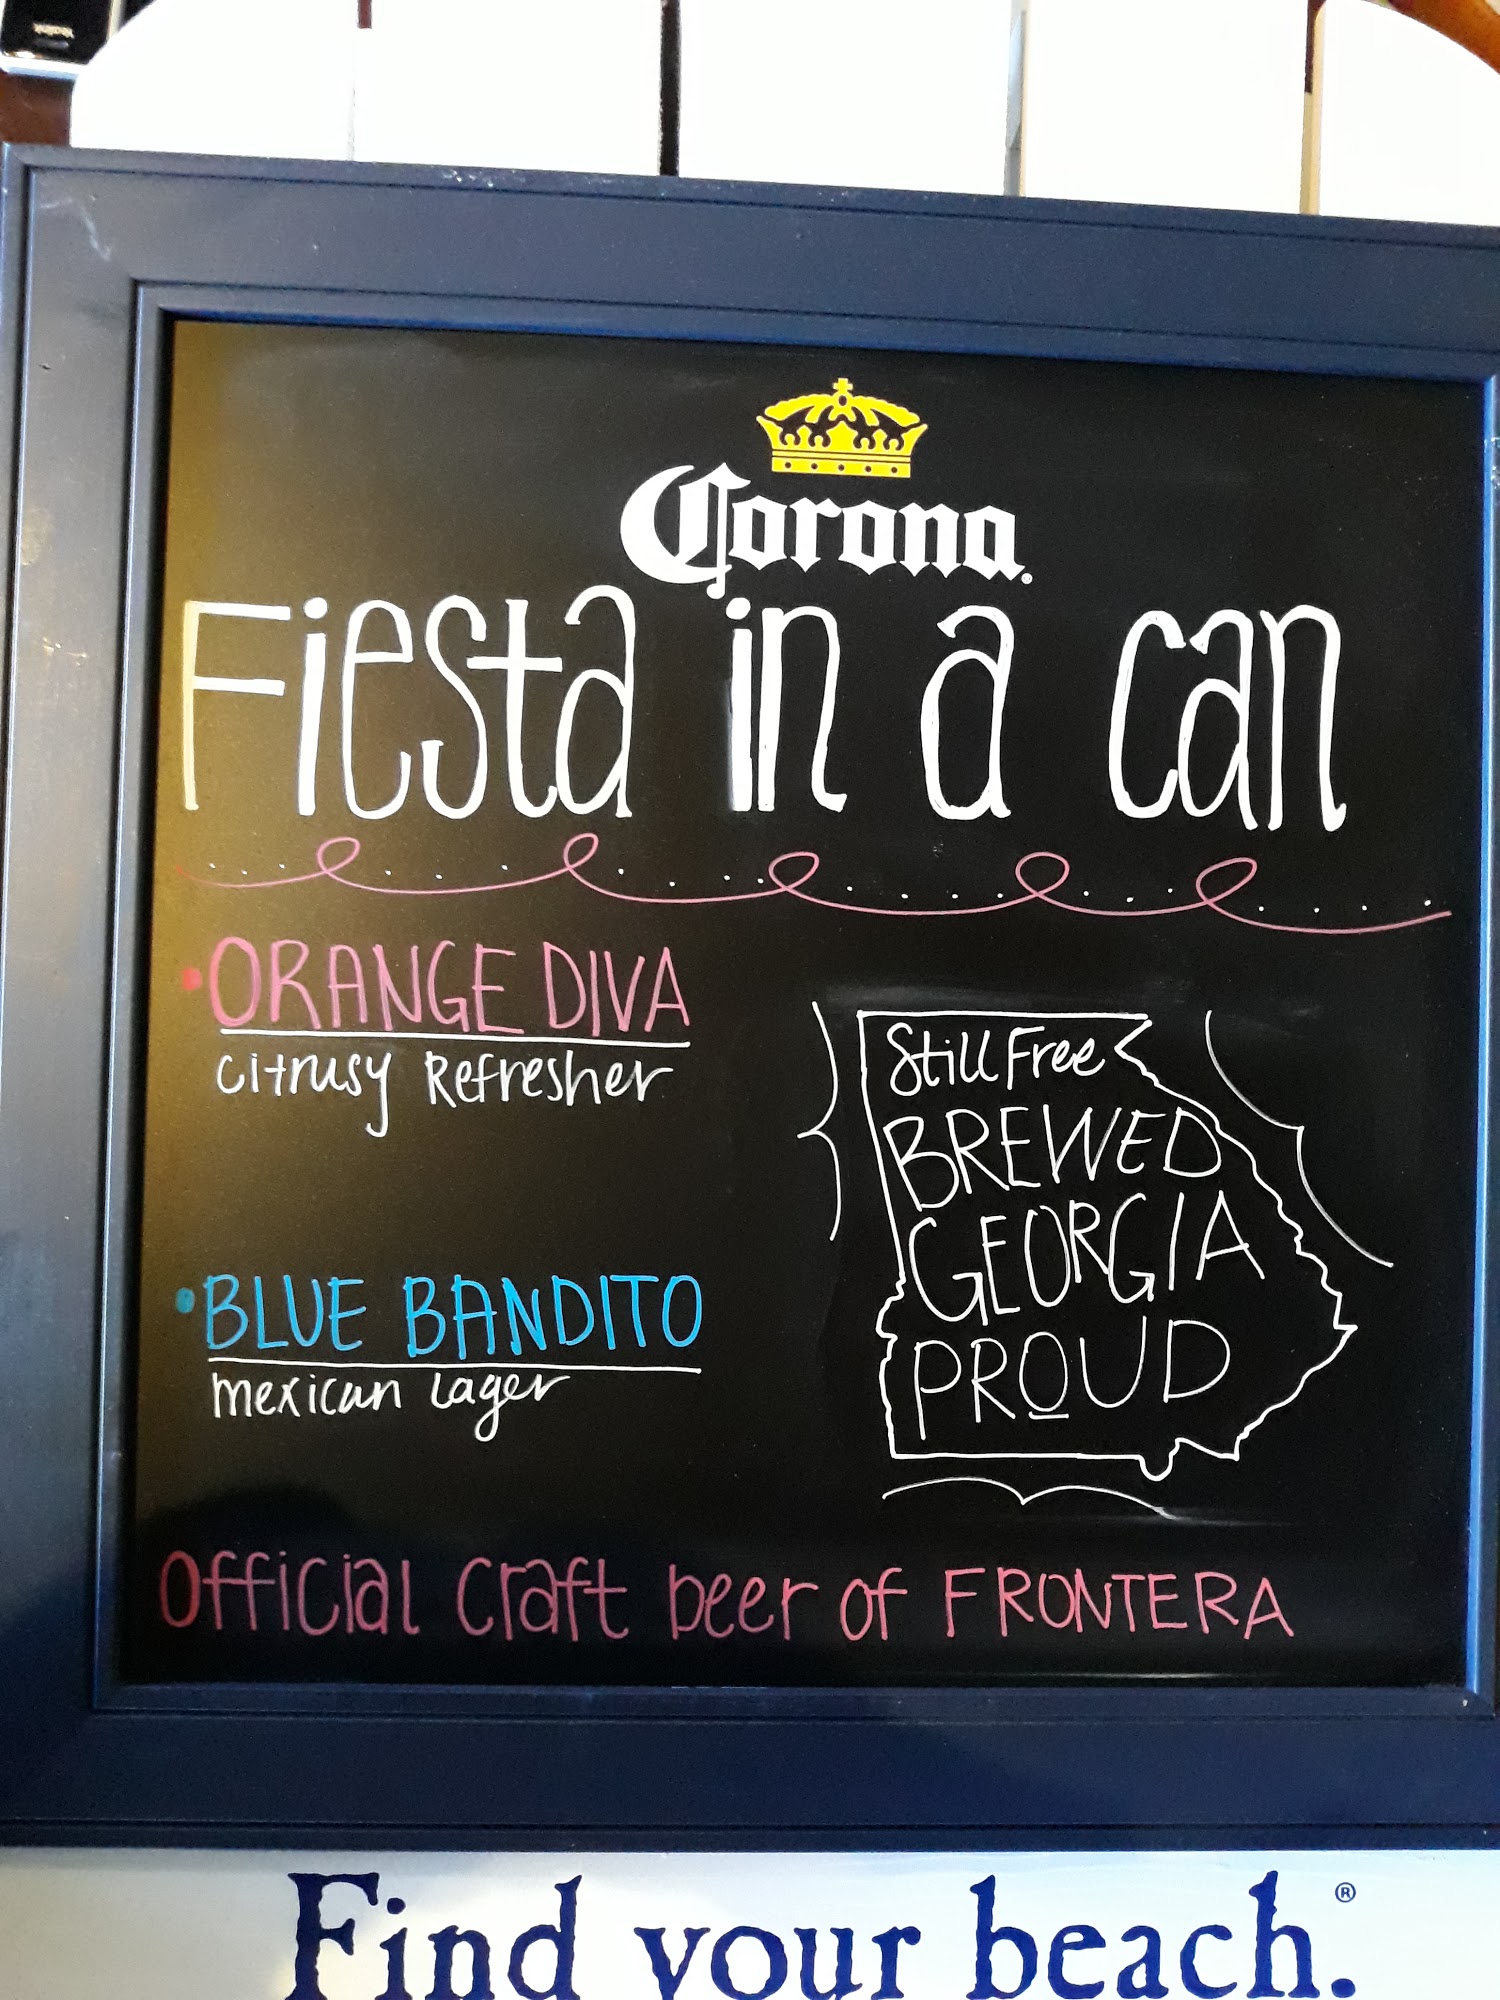 Corona®
Fiesta in a can
• ORANGE DIVA
Citrusy Refresher
Still Free
BREWED
GEORGIA
PROUD
• BLUE BANDITO
mexican Lager
Official Craft beer of FRONTERA
Find your beach.®